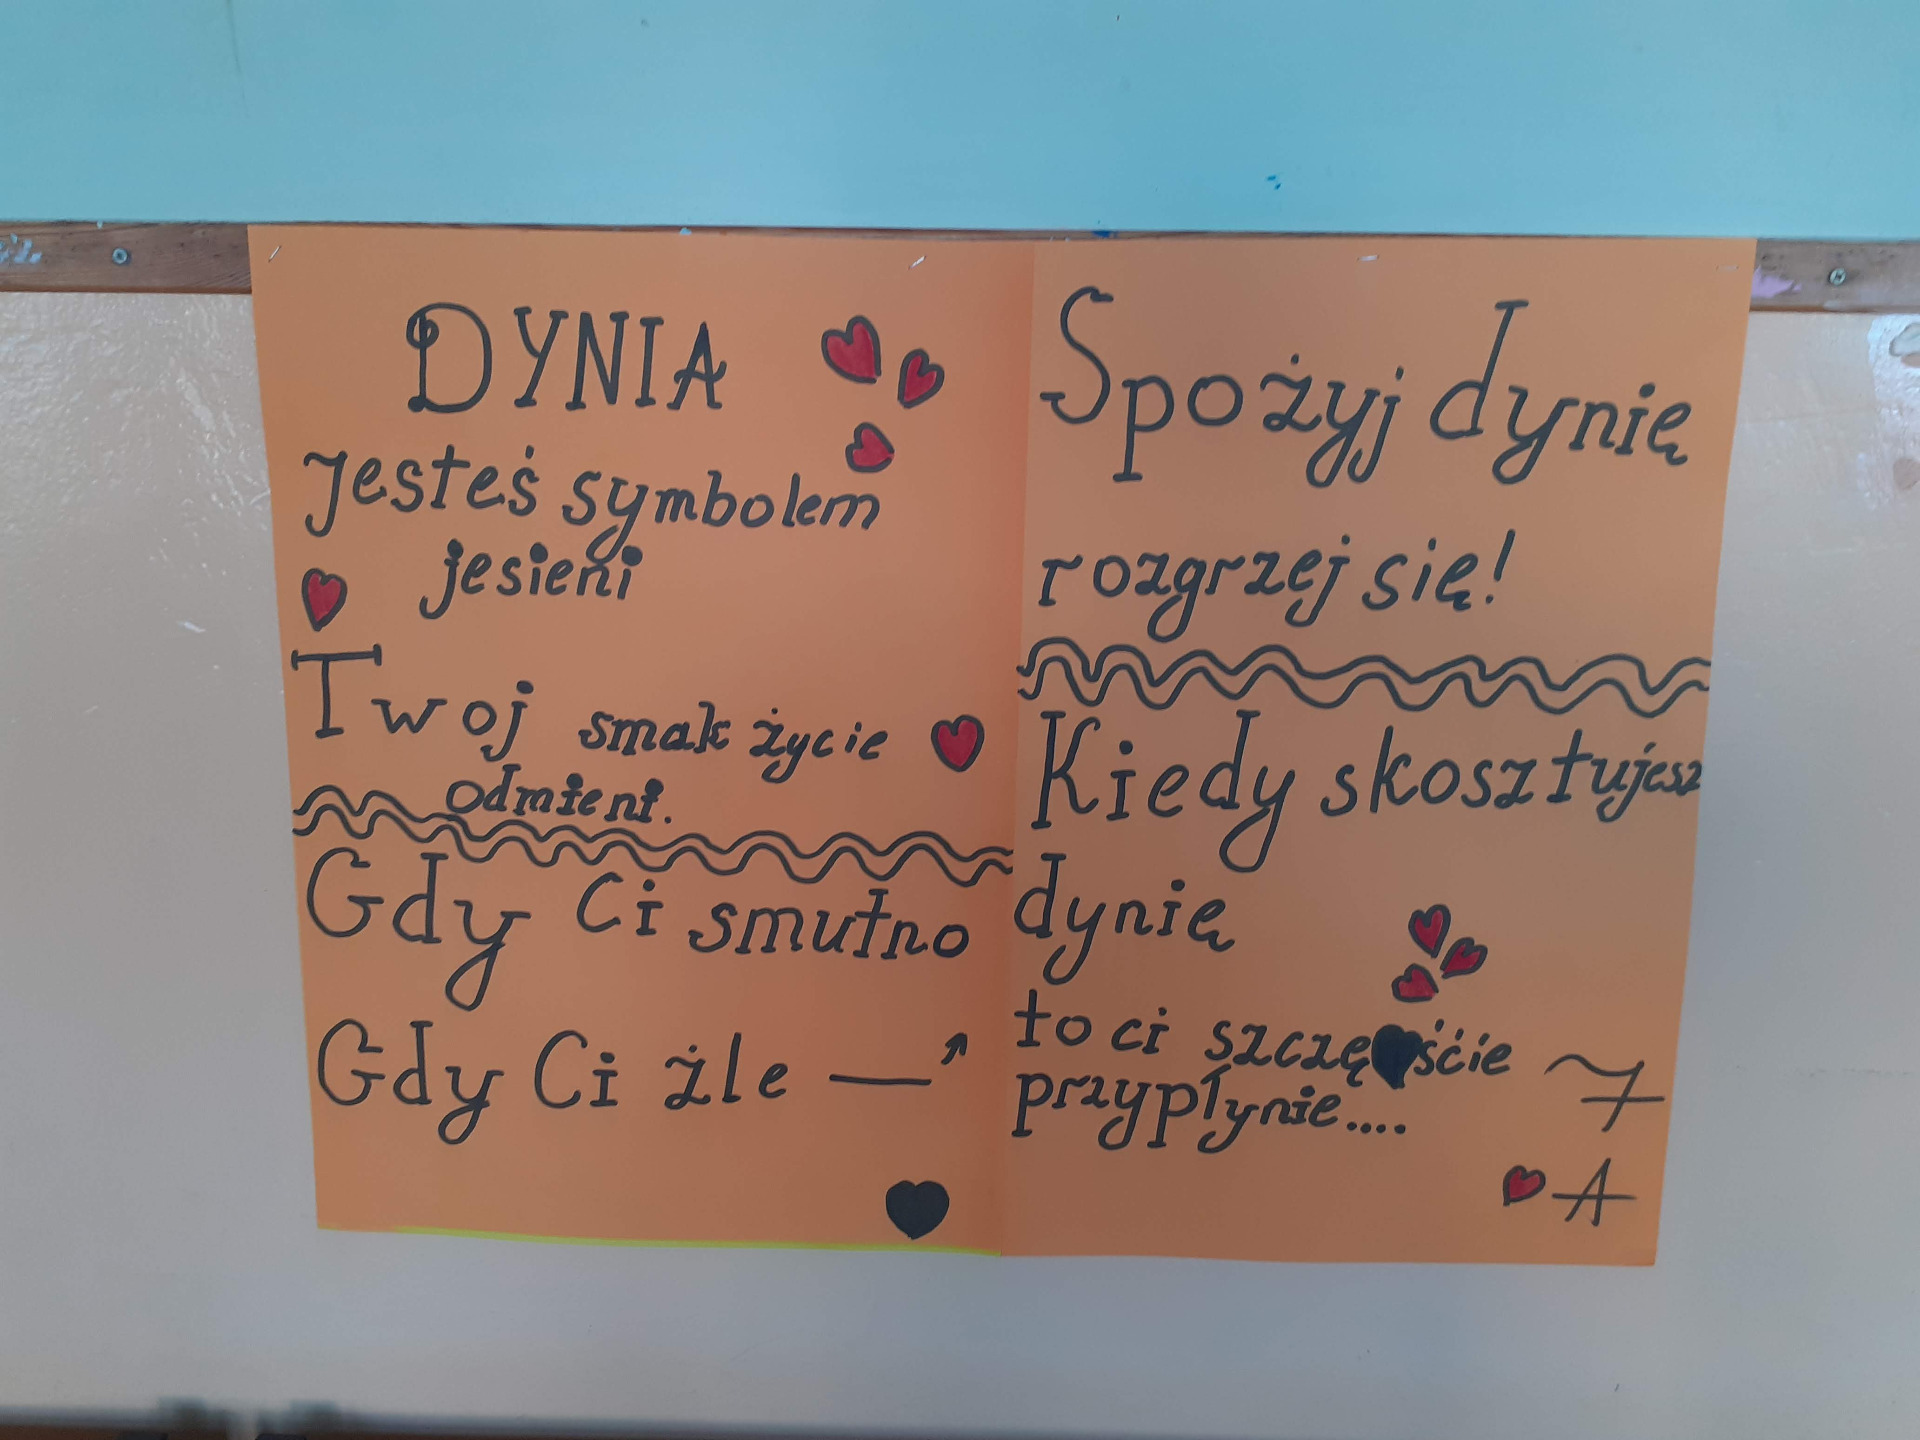 DYNIA
jesteś symbolem
jesieni
Twoj smak życie
odmieni.
Gdy Ci smutno
Gdy Ci żle
Spożyj dynię
rozgrzej się!
Kiedy skosztujesz
dynię
to ci szczęście
przypłynie....
7
A